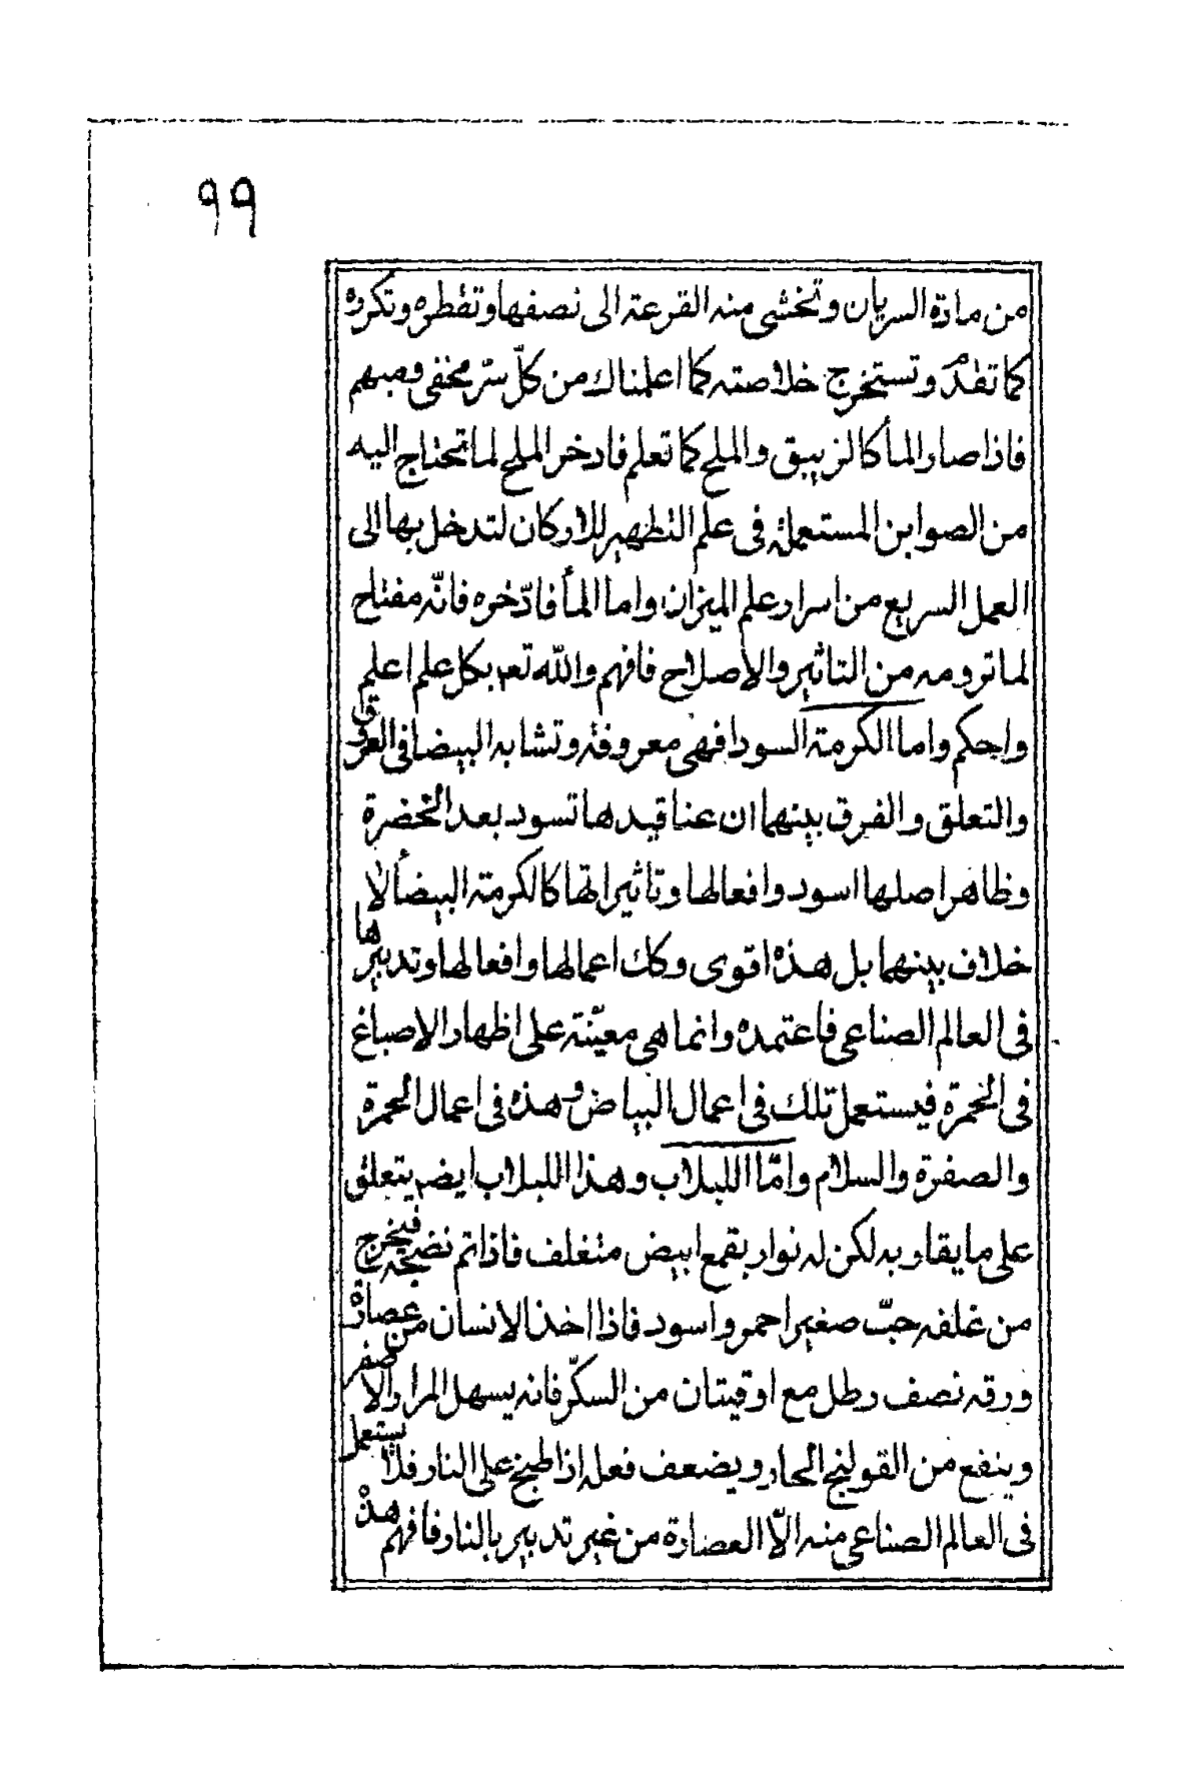 ٩٩
من مادة السريان وتخشى منه القرعة الى نصفها وتقطره وتكرره
كما تقدم وتستخرج خلاصته كما اعلمناك من كلّ سرّ مخفى ومبهم
فاذا صار المأ كالزيبق والملح كما تعلم فادخر الملح لما تحتاج اليه
من الصوابن المستعملة فى علم التطهير للاركان لتدخل بها الى
العمل السريع من اسرار علم الميزان واما المأ فادّخره فانّه مفتاح
لما ترومه من التاثير والاصلاح فافهم والله تعـ بكل علم اعلم
واحكم واما الكرمة السودا فهى معروفة وتشابه البيضا فى العروق
والتعلق والفرق بينهما ان عناقيدها تسود بعد الخضرة
وظاهر اصلها اسود وافعالها وتاثيراتها كالكرمة البيضأ لا
خلاف بينهما بل هذه اقوى وكك اعمالها وافعالها وتدبيرها
فى العالم الصناعى فاعتمده وانما هى معيّنة على اظهار الاصباغ
فى الخمرة فيستعمل تلك فى اعمال البياض وهذه فى اعمال الحمرة
والصفرة والسلام وامّا اللبلاب وهذا اللبلاب ايضـ يتعلق
على ما يقاربه لكن له نوار بقمع ابيض متغلف فاذا تم نضجه فيخرج
من غلفه حبّ صغير احمر واسود فاذا اخذ الانسان من عصارة
ورقه نصف رطل مع اوقيتان من السكّر فانه يسهل المرار الاصفر
وينفع من القولنج الحار ويضعف فعله اذا طبخ على النار فلا يستعمل
فى العالم الصناعى منه الاّ العصارة من غير تدبير بالنار فافهم هذه